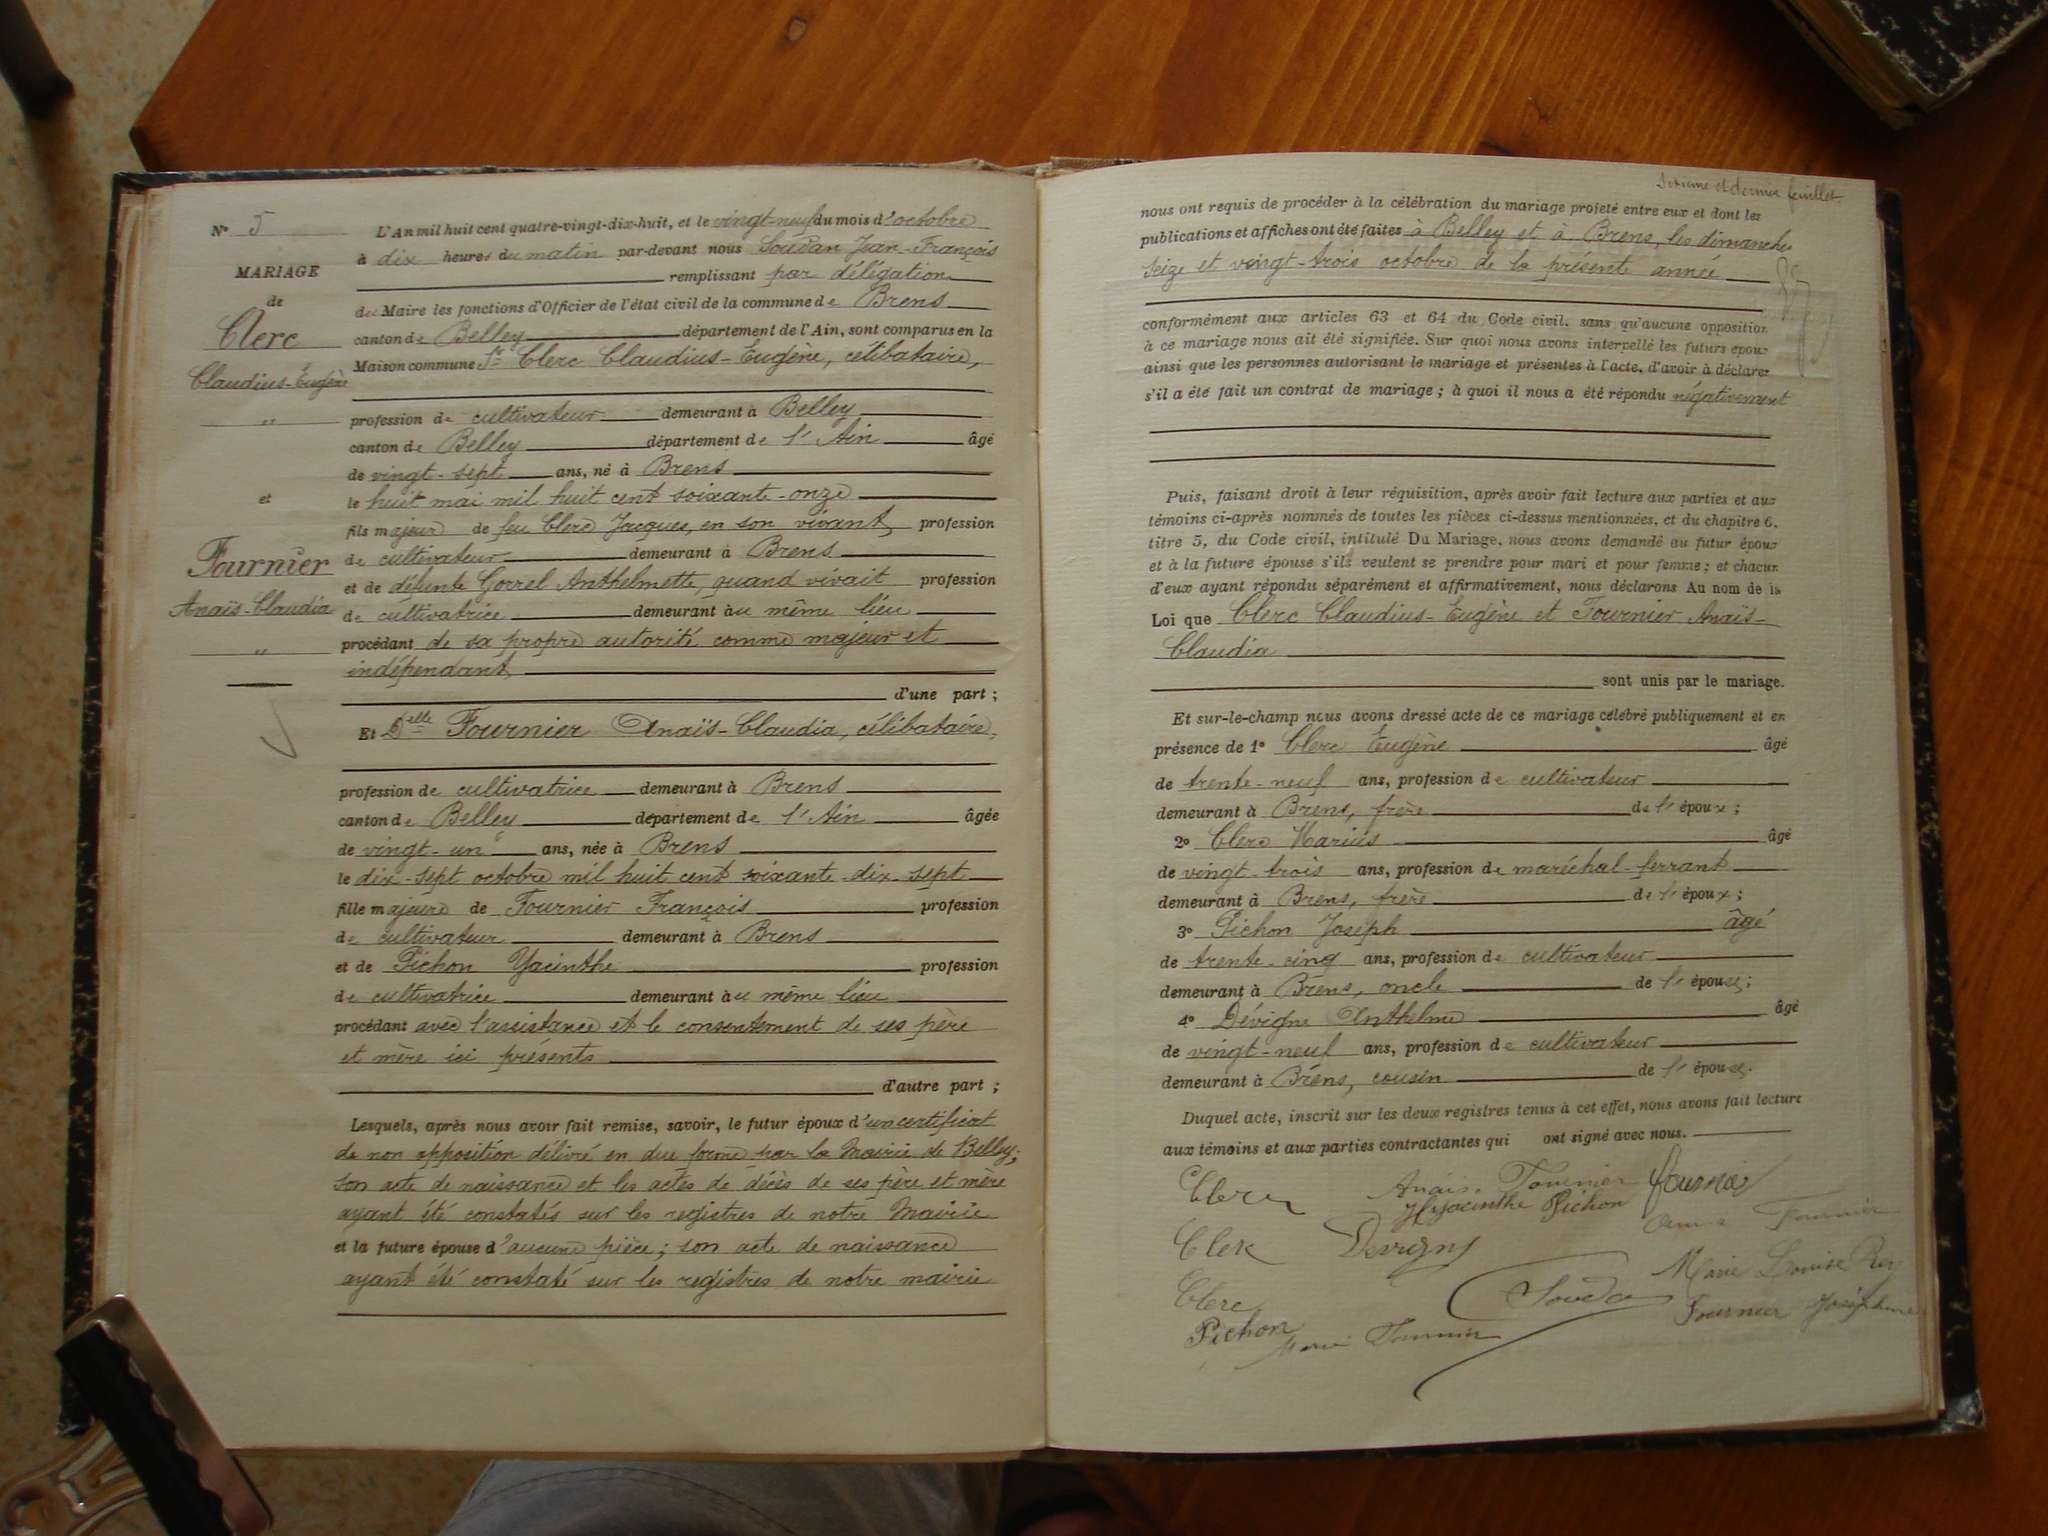 N° 5
MARIAGE
de
Clerc
Claudius-Eugène
"
et
Fournier
Anaïs-Claudia
"
L'An mil huit cent quatre-vingt-dix-huit, et le vingt-neuf du mois d'octobre
à dix heures du matin par-devant nous Soudan Jean-François
remplissant par délégation
du Maire les fonctions d'Officier de l'état civil de la commune de Brens
canton de Belley département de l'Ain, sont comparus en la
Maison commune Sr Clerc Claudius-Eugène, célibataire,
profession de cultivateur demeurant à Belley
canton de Belley département de l'Ain âgé
de vingt-sept ans, né à Brens
le huit mai mil huit cent soixante-onze
fils majeur de feu Clerc Jacques, en son vivant profession
de cultivateur demeurant à Brens
et de défunte Gorrel Anthelmette, quand vivait profession
de cultivatrice demeurant au même lieu
procédant de sa propre autorité comme majeur et
indépendant
d'une part ;
Et Delle Fournier Anaïs-Claudia, célibataire,
profession de cultivatrice demeurant à Brens
canton de Belley département de l'Ain âgée
de vingt-un ans, née à Brens
le dix-sept octobre mil huit cent soixante-dix-sept
fille majeure de Fournier François profession
de cultivateur demeurant à Brens
et de Pichon Yacinthe profession
de cultivatrice demeurant au même lieu
procédant avec l'assistance et le consentement de ses père
et mère ici présents
d'autre part ;
Lesquels, après nous avoir fait remise, savoir, le futur époux d'un certificat
de non opposition délivré en due forme par la Mairie de Belley;
son acte de naissance et les actes de décès de ses père et mère
ayant été constatés sur les registres de notre Mairie
et la future épouse d'aucune pièce ; son acte de naissance
ayant été constaté sur les registres de notre mairie
et dernier feuillet
nous ont requis de procéder à la célébration du mariage projeté entre eux et dont les
publications et affiches ont été faites à Belley et à Brens, les dimanches
seize et vingt-trois octobre de la présente année
conformément aux articles 63 et 64 du Code civil, sans qu'aucune opposition
à ce mariage nous ait été signifiée. Sur quoi nous avons interpellé les futurs époux
ainsi que les personnes autorisant le mariage et présentes à l'acte, d'avoir à déclarer
s'il a été fait un contrat de mariage ; à quoi il nous a été répondu négativement
Puis, faisant droit à leur réquisition, après avoir fait lecture aux parties et aux
témoins ci-après nommés de toutes les pièces ci-dessus mentionnées, et du chapitre 6,
titre 5, du Code civil, intitulé Du Mariage, nous avons demandé au futur époux
et à la future épouse s'ils veulent se prendre pour mari et pour femme ; et chacun
d'eux ayant répondu séparément et affirmativement, nous déclarons Au nom de la
Loi que Clerc Claudius-Eugène et Fournier Anaïs-
Claudia
sont unis par le mariage.
Et sur-le-champ nous avons dressé acte de ce mariage célébré publiquement et en
présence de 1° Clerc Eugène âgé
de trente-neuf ans, profession de cultivateur
demeurant à Brens, frère de l'époux ;
2° Clerc Marius âgé
de vingt-trois ans, profession de maréchal-ferrant
demeurant à Brens, frère de l'époux ;
3° Pichon Joseph âgé
de trente-cinq ans, profession de cultivateur
demeurant à Brens, oncle de l'épouse;
4° Dévigne Anthelme âgé
de vingt-neuf ans, profession de cultivateur
demeurant à Brens, cousin de l'épouse.
Duquel acte, inscrit sur les deux registres tenus à cet effet, nous avons fait lecture
aux témoins et aux parties contractantes qui ont signé avec nous.
Clerc Anaïs Fournier
Hyacinthe Pichon
Fournier
Clerc
Marie Louise
Clerc Soudan
Fournier Joséphine
Pichon
Marie Fournier